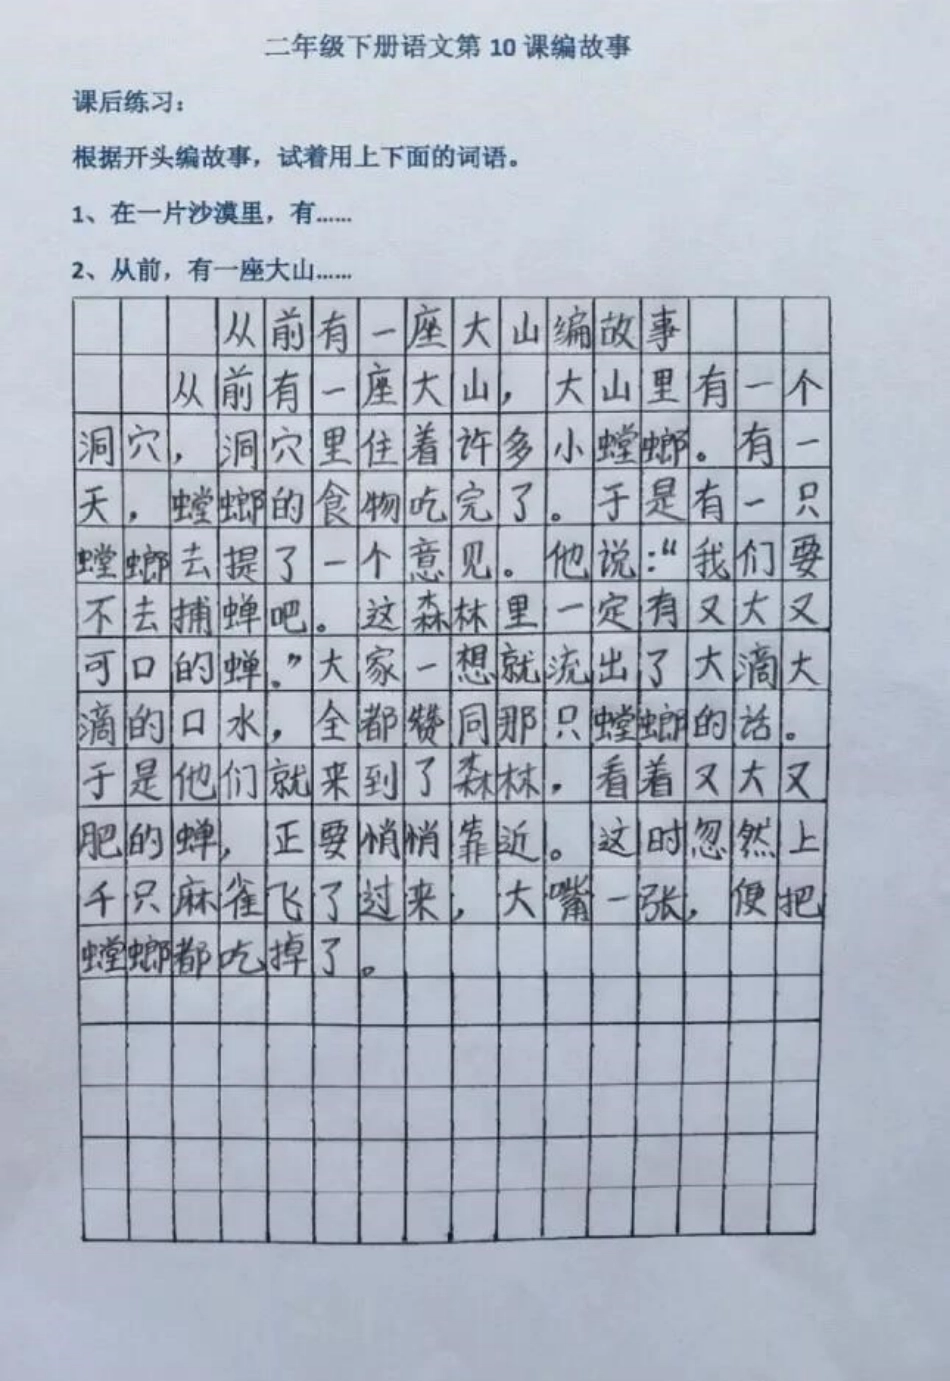 二年级下册语文第 10 课编故事
课后练习：
根据开头编故事，试着用上下面的词语。
1、在一片沙漠里，有……
2、从前，有一座大山……
从前有一座大山编故事
从前有一座大山，大山里有一个
洞穴，洞穴里住着许多小螳螂。有一
天，螳螂的食物吃完了。于是有一只
螳螂去提了一个意见。他说：“我们要
不去捕蝉吧。这森林里一定有又大又
可口的蝉。”大家一想就流出了大滴大
滴的口水，全都赞同那只螳螂的话。
于是他们就来到了森林，看着又大又
肥的蝉，正要悄悄靠近。这时忽然上
千只麻雀飞了过来，大嘴一张，便把
螳螂都吃掉了。